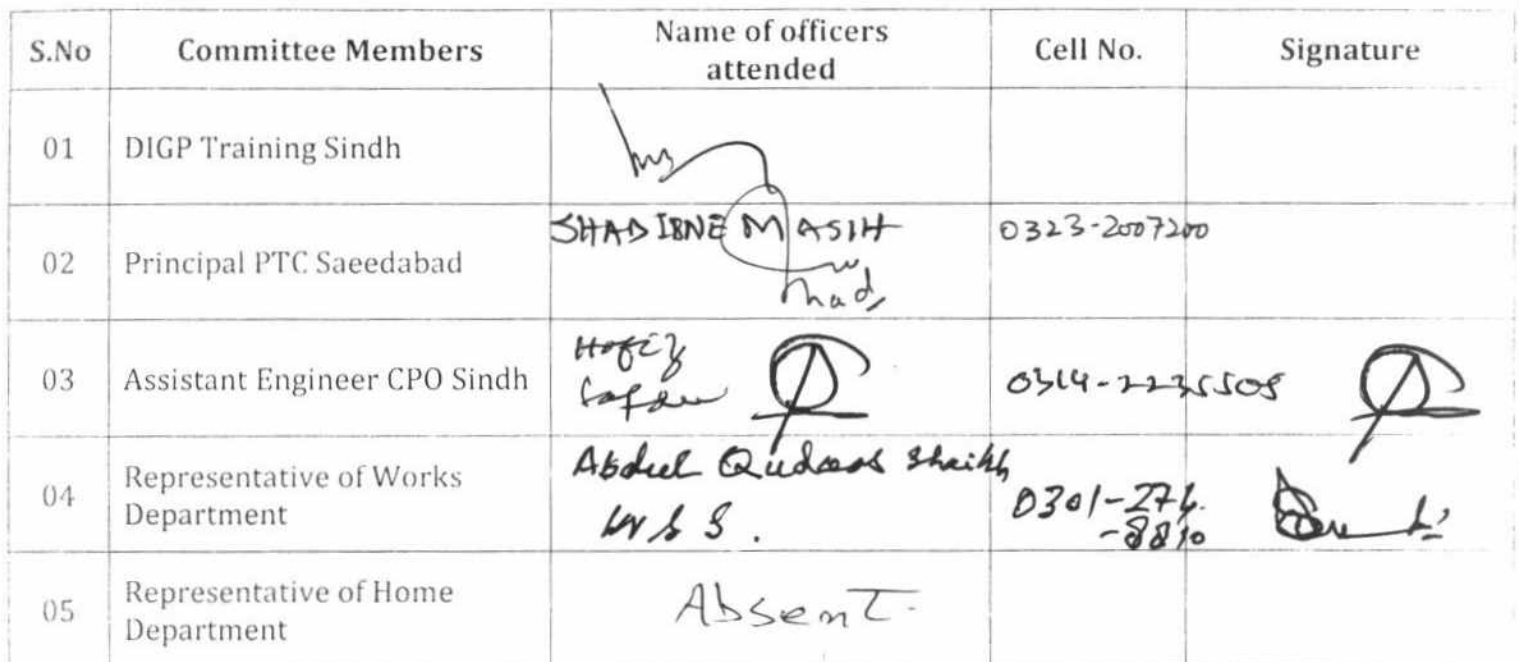 S.No Committee Members Name of officers attended Cell No. Signature
01 DIGP Training Sindh
02 Principal PTC Saeedabad SHAD IBNE MASIH 0323-2007200
03 Assistant Engineer CPO Sindh Hafiz 0314-2235505
04 Representative of Works Department Abdul Qudoos Shaikh 0301-276-8810
05 Representative of Home Department Absent.